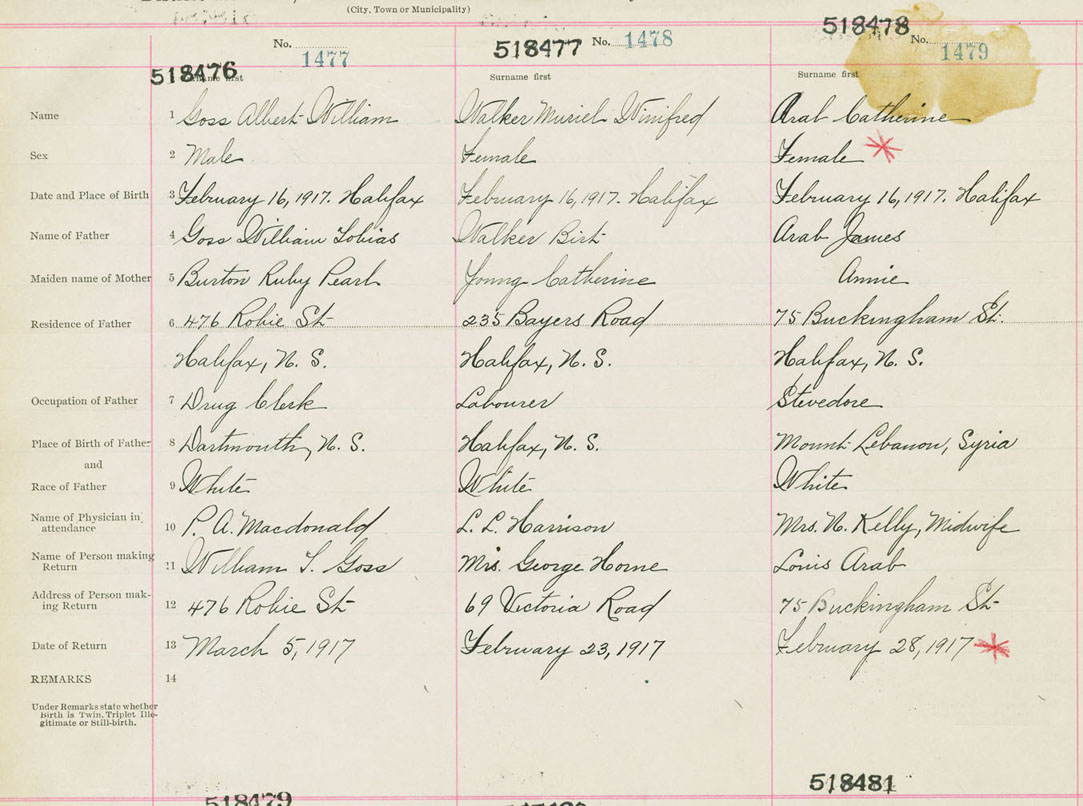 (City, Town or Municipality)
518476 No. 1477 518477 No. 1478 518478 No. 1479
Surname first Surname first Surname first
Name 1 Goss Albert William Walker Muriel Winifred Arab Catherine
Sex 2 Male Female Female
Date and Place of Birth 3 February 16, 1917. Halifax February 16, 1917. Halifax February 16, 1917. Halifax
Name of Father 4 Goss William Tobias Walker Birt Arab James
Maiden name of Mother 5 Burton Ruby Pearl Young Catherine Annie
Residence of Father 6 476 Robie St 235 Bayers Road 75 Buckingham St.
Halifax, N. S. Halifax, N. S. Halifax, N. S.
Occupation of Father 7 Drug Clerk Labourer Stevedore
Place of Birth of Father 8 Dartmouth, N. S. Halifax, N. S. Mount Lebanon, Syria
and
Race of Father 9 White White White
Name of Physician in
attendance 10 P. A. Macdonald L. L. Harrison Mrs. N. Kelly, Midwife
Name of Person making
Return 11 William T. Goss Mrs. George Horne Louis Arab
Address of Person mak-
ing Return 12 476 Robie St 69 Victoria Road 75 Buckingham St
Date of Return 13 March 5, 1917 February 23, 1917 February 28, 1917
REMARKS 14
Under Remarks state whether
Birth is Twin, Triplet Ille-
gitimate or Still-birth.
518479 518481